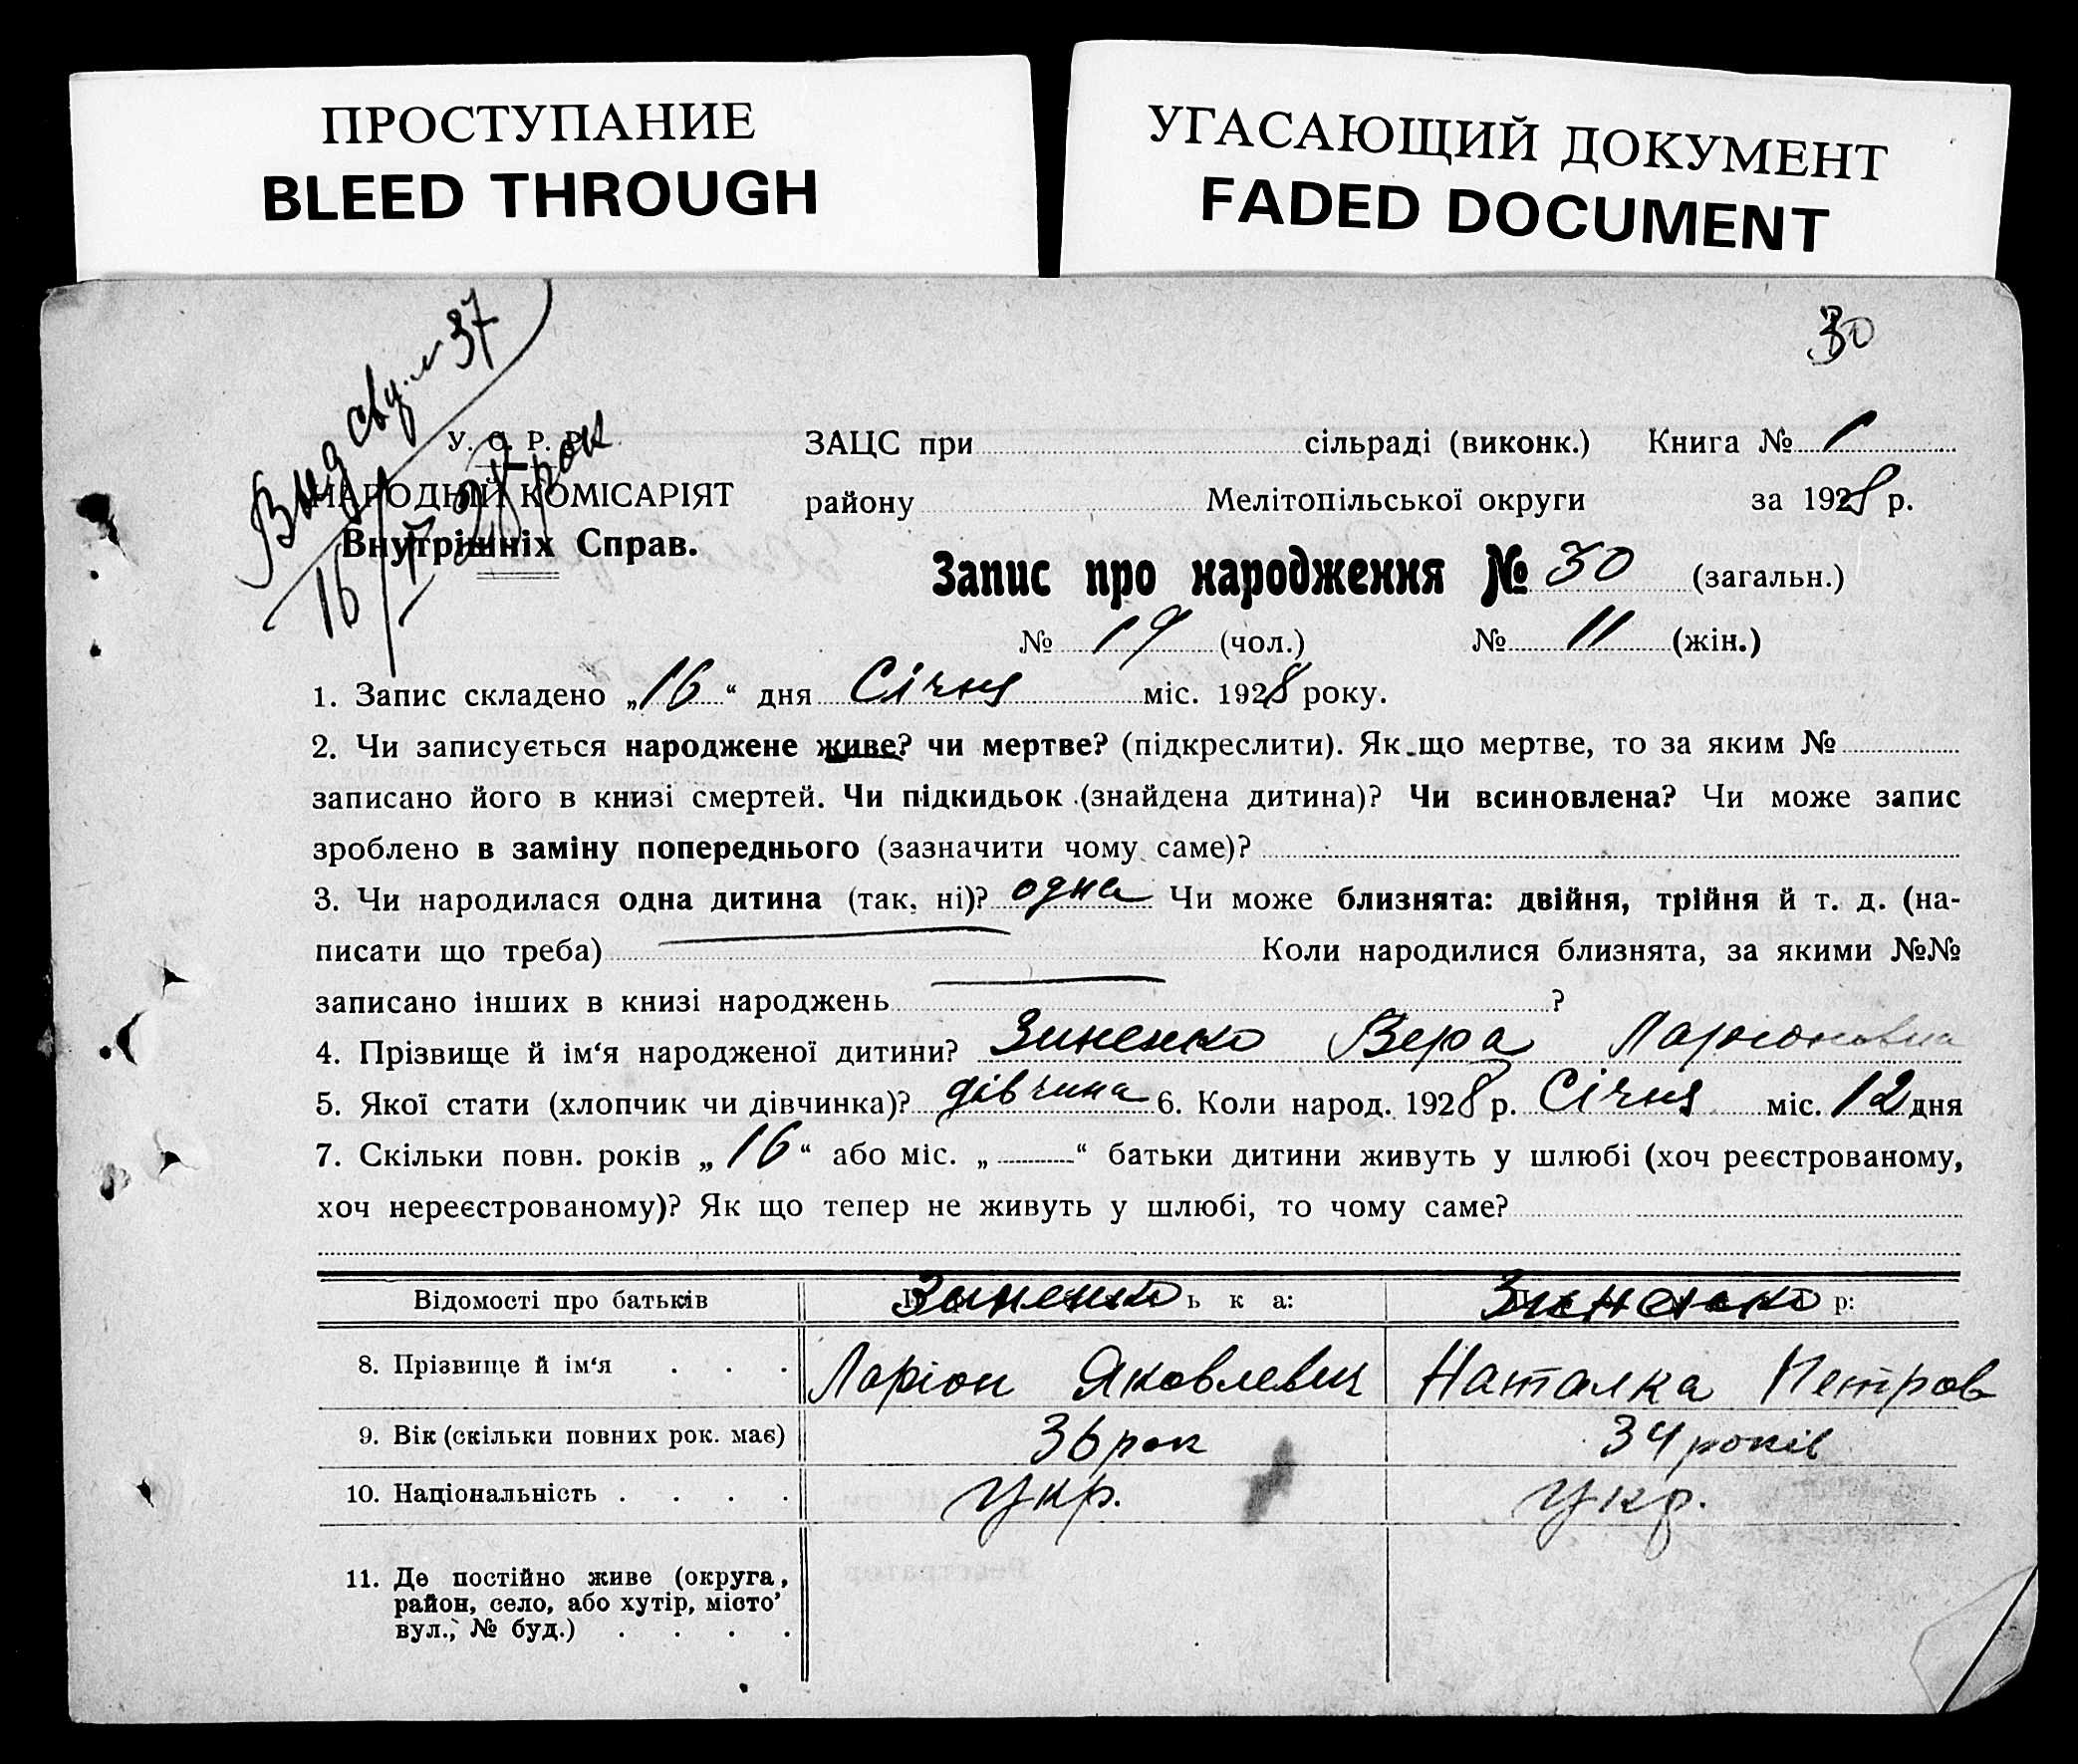 ПРОСТУПАНИЕ
BLEED THROUGH
УГАСАЮЩИЙ ДОКУМЕНТ
FADED DOCUMENT
30
Вид свид. № 37
16/I 28 рок
У. С. Р. Р.
НАРОДНІЙ КОМІСАРІЯТ
Внутрішніх Справ.
ЗАЦС при сільраді (виконк.) Книга № 1
району Мелітопільської округи за 1928 р.
Запис про народження № 30 (загальн.)
№ 19 (чол.) № 11 (жін.)
1. Запис складено „16“ дня Січня міс. 1928 року.
2. Чи записується народжене живе? чи мертве? (підкреслити). Як що мертве, то за яким №
записано його в книзі смертей. Чи підкидьок (знайдена дитина)? Чи всиновлена? Чи може запис
зроблено в заміну попереднього (зазначити чому саме)?
3. Чи народилася одна дитина (так, ні)? одна Чи може близнята: двійня, трійня й т. д. (на-
писати що треба) Коли народилися близнята, за якими №№
записано інших в книзі народжень ?
4. Прізвище й ім‘я народженої дитини? Зиненко Вера Ларионовна
5. Якої стати (хлопчик чи дівчинка)? дівчина 6. Коли народ. 1928 р. Січня міс. 12 дня
7. Скільки повн. років „16“ або міс. „ “ батьки дитини живуть у шлюбі (хоч реєстрованому,
хоч нереєстрованому)? Як що тепер не живуть у шлюбі, то чому саме?
Відомості про батьків Зиненко ь к а: Зиненко р:
8. Прізвище й ім‘я . . . Ларіон Яковлевич Наталка Петров
9. Вік (скільки повних рок. має) 36 рок 34 років
10. Національність . . . . Укр. Укр.
11. Де постійно живе (округа,
район, село, або хутір, місто’
вул., № буд.) . . . .